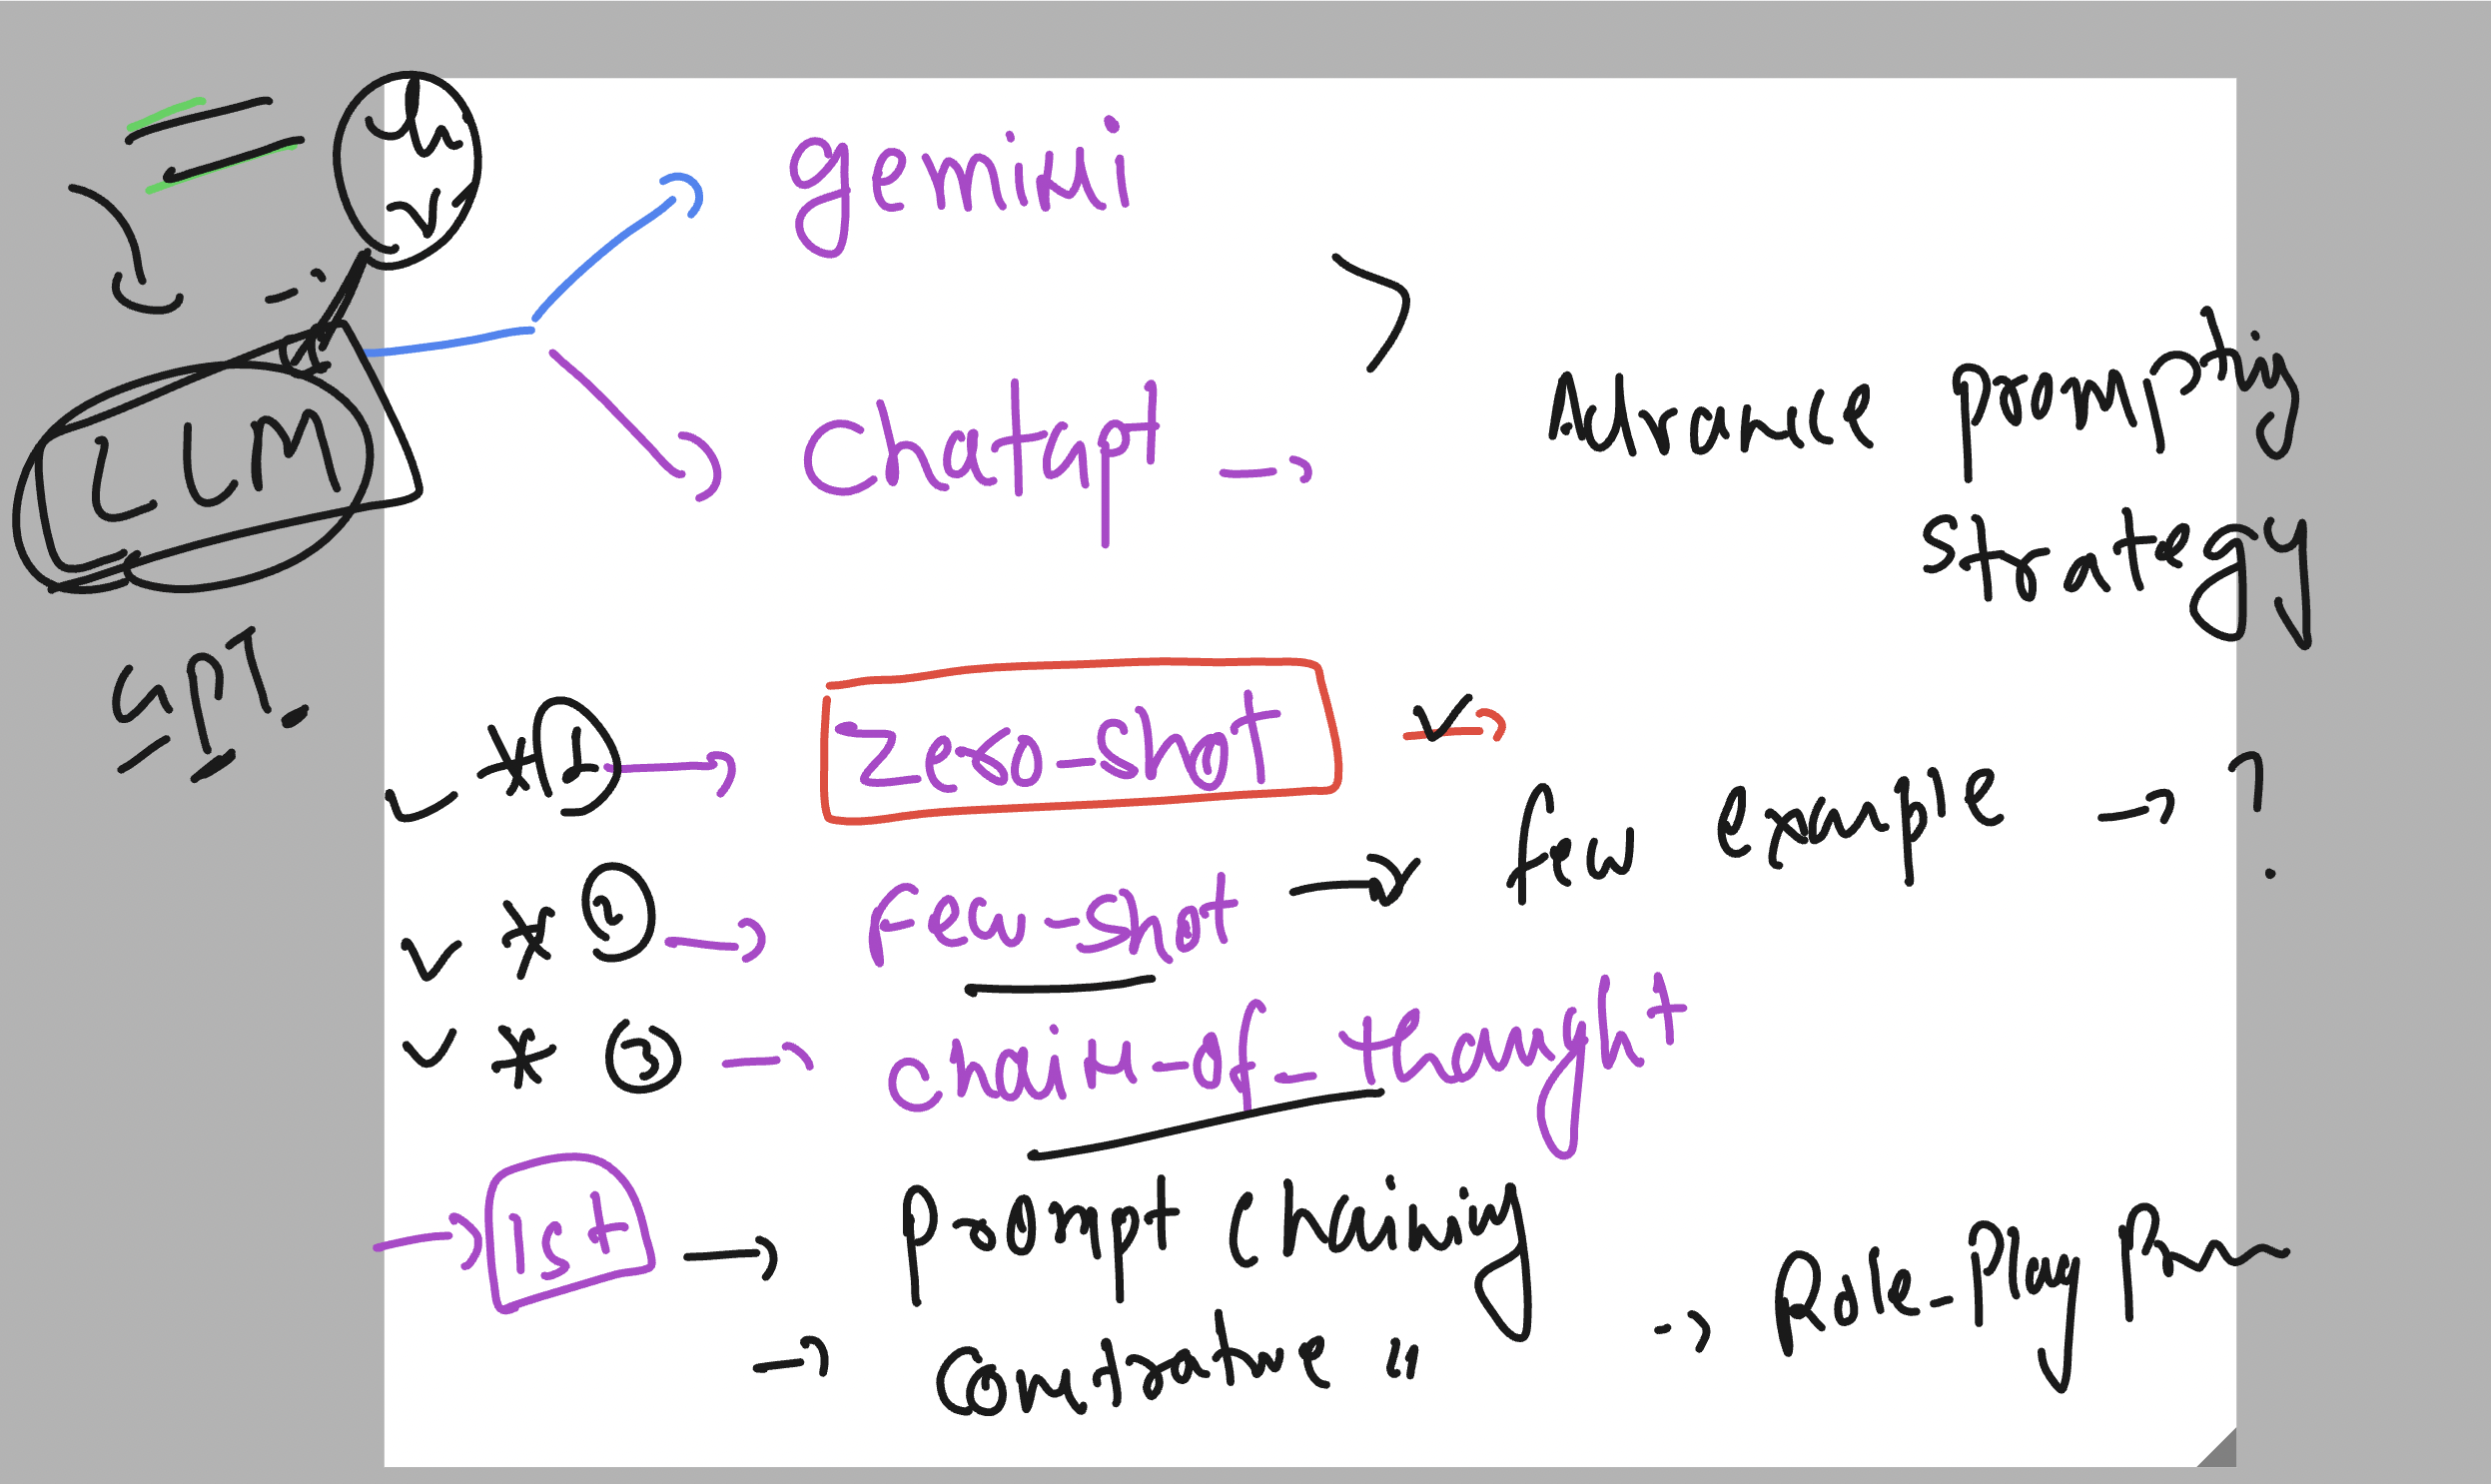 gemini
LLM
Chatgpt →
Advance prompting
Strategy
GPT
* 1 → Zero-shot →
* 2 → Few-shot → few example → ?
* 3 → chain-of-thought
→ 1st → Prompt Chaining
→ Contrative " → Role-Play